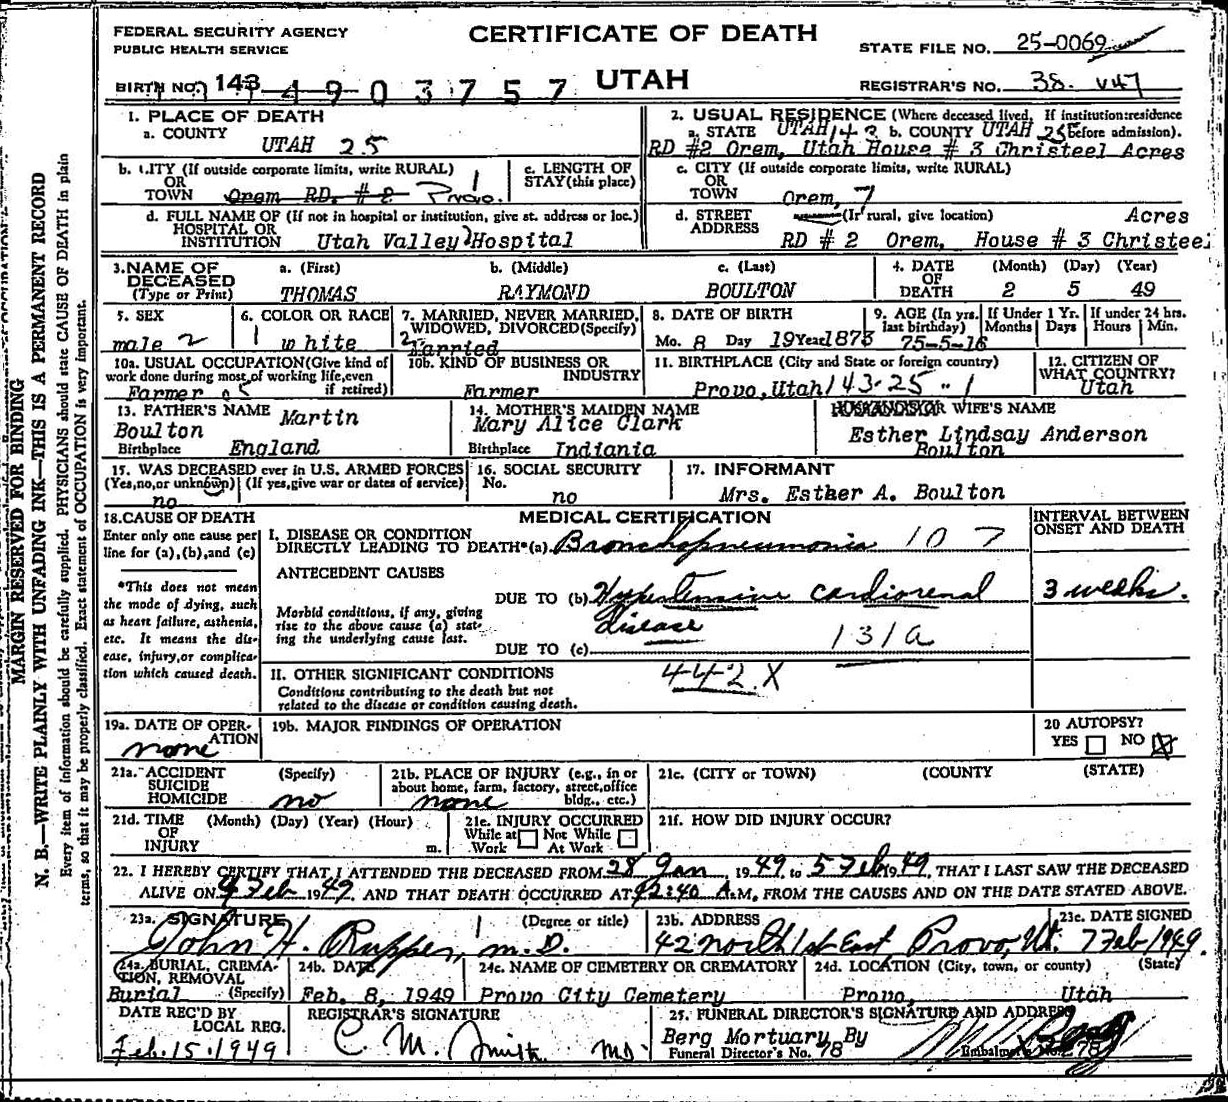 FEDERAL SECURITY AGENCY
PUBLIC HEALTH SERVICE
CERTIFICATE OF DEATH
UTAH
STATE FILE NO. 25-0069
REGISTRAR'S NO. 38. V47
BIRTH NO. 143 4 9 0 3 7 5 7
1. PLACE OF DEATH
a. COUNTY
UTAH 25
2. USUAL RESIDENCE (Where deceased lived. If institution:residence before admission).
a. STATE UTAH 143 b. COUNTY UTAH 25
RD #2 Orem, Utah House # 3 Christeel Acres
b. CITY (If outside corporate limits, write RURAL)
OR
TOWN Orem RD. # 2 Provo. 1
c. LENGTH OF
STAY (this place)
c. CITY (If outside corporate limits, write RURAL)
OR
TOWN Orem, 7
d. FULL NAME OF (If not in hospital or institution, give st. address or loc.)
HOSPITAL OR
INSTITUTION Utah Valley Hospital
d. STREET (If rural, give location) Acres
ADDRESS RD # 2 Orem, House # 3 Christeel
3. NAME OF
DECEASED
(Type or Print)
a. (First)
THOMAS
b. (Middle)
RAYMOND
c. (Last)
BOULTON
4. DATE
OF
DEATH
(Month) (Day) (Year)
2 5 49
5. SEX
male 2
6. COLOR OR RACE
1 white
7. MARRIED, NEVER MARRIED,
WIDOWED, DIVORCED (Specify)
2 Married
8. DATE OF BIRTH
Mo. 8 Day 19 Year 1873
9. AGE (In yrs. last birthday)
If Under 1 Yr. Months Days
If under 24 hrs. Hours Min.
75-5-16
10a. USUAL OCCUPATION (Give kind of
work done during most of working life, even
if retired)
Farmer 05
10b. KIND OF BUSINESS OR
INDUSTRY
Farmer
11. BIRTHPLACE (City and State or foreign country)
Provo, Utah 143-25 " 1
12. CITIZEN OF
WHAT COUNTRY?
Utah
13. FATHER'S NAME Martin
Boulton
Birthplace England
14. MOTHER'S MAIDEN NAME
Mary Alice Clark
Birthplace Indiania
WIFE'S NAME
Esther Lindsay Anderson
Boulton
15. WAS DECEASED ever in U.S. ARMED FORCES
(Yes, no, or unknown) (If yes, give war or dates of service)
no
16. SOCIAL SECURITY
No.
no
17. INFORMANT
Mrs. Esther A. Boulton
18. CAUSE OF DEATH
Enter only one cause per
line for (a), (b), and (c)
*This does not mean
the mode of dying, such
as heart failure, asthenia,
etc. It means the dis-
ease, injury, or complica-
tion which caused death.
MEDICAL CERTIFICATION
INTERVAL BETWEEN
ONSET AND DEATH
I. DISEASE OR CONDITION
DIRECTLY LEADING TO DEATH* (a) Bronchopneumonia 107
ANTECEDENT CAUSES
DUE TO (b) Hypertensive cardiorenal 3 weeks.
Morbid conditions, if any, giving
rise to the above cause (a) stat-
ing the underlying cause last.
disease
DUE TO (c) 131a
II. OTHER SIGNIFICANT CONDITIONS
Conditions contributing to the death but not
related to the disease or condition causing death.
442X
19a. DATE OF OPER-
ATION
none
19b. MAJOR FINDINGS OF OPERATION
20 AUTOPSY?
YES NO X
21a. ACCIDENT (Specify)
SUICIDE
HOMICIDE no
21b. PLACE OF INJURY (e.g., in or
about home, farm, factory, street, office
bldg., etc.)
none
21c. (CITY or TOWN) (COUNTY) (STATE)
21d. TIME (Month) (Day) (Year) (Hour)
OF
INJURY m.
21e. INJURY OCCURRED
While at Work Not While At Work
21f. HOW DID INJURY OCCUR?
22. I HEREBY CERTIFY THAT I ATTENDED THE DECEASED FROM 28 Jan 1949, to 5 Feb 1949, THAT I LAST SAW THE DECEASED
ALIVE ON 4 Feb 1949, AND THAT DEATH OCCURRED AT 12:40 A.M., FROM THE CAUSES AND ON THE DATE STATED ABOVE.
23a. SIGNATURE (Degree or title)
John H. Rupper, M.D.
23b. ADDRESS
42 north 1st East Provo, Ut.
23c. DATE SIGNED
7 Feb 1949
24a. BURIAL, CREMA-
TION, REMOVAL
Burial (Specify)
24b. DATE
Feb. 8, 1949
24c. NAME OF CEMETERY OR CREMATORY
Provo City Cemetery
24d. LOCATION (City, town, or county) (State)
Provo, Utah
DATE REC'D BY
LOCAL REG.
Feb. 15. 1949
REGISTRAR'S SIGNATURE
C. M. Smith MD.
25. FUNERAL DIRECTOR'S SIGNATURE AND ADDRESS
Berg Mortuary By
Funeral Director's No. 78
Embalmer's No. 78
MARGIN RESERVED FOR BINDING
N. B.—WRITE PLAINLY WITH UNFADING INK—THIS IS A PERMANENT RECORD
Every item of information should be carefully supplied. PHYSICIANS should state CAUSE OF DEATH in plain
terms, so that it may be properly classified. Exact statement of OCCUPATION is very important.